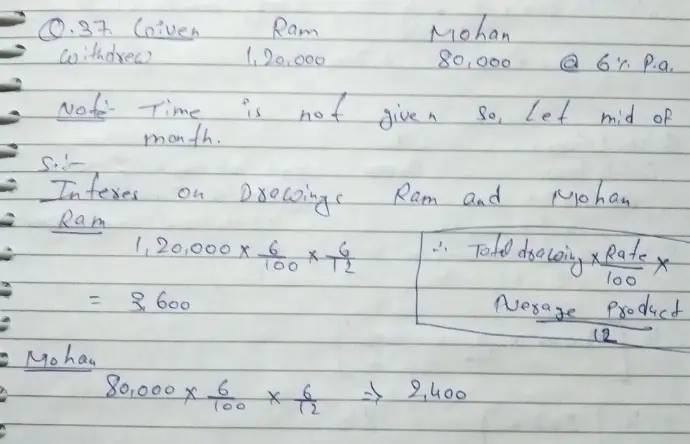 Q.37 Given Ram Mohan
Withdrew 1,20,000 80,000 @ 6% P.a.
Note:- Time is not given so, Let mid of
month.
S.:-
Interes on Drawings Ram and Mohan
Ram
1,20,000 × 6/100 × 6/12
= 3,600
∴ Total drawing × Rate/100 ×
Average Product/12
Mohan
80,000 × 6/100 × 6/12 ⇒ 2,400